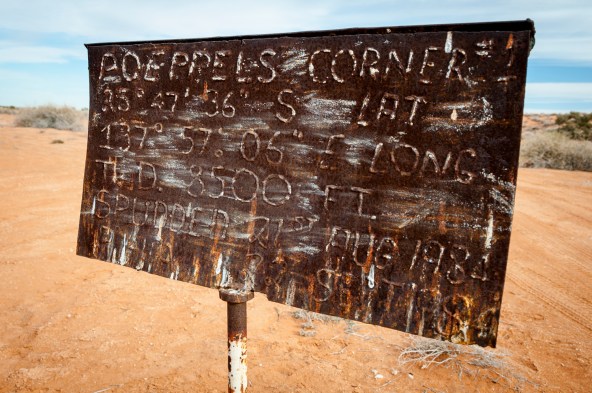 POEPPELS CORNER 1
35° 47' 36" S LAT
137° 57' 06" E LONG
T.D. 8500 FT.
SPUDDED 21ST AUG 1984